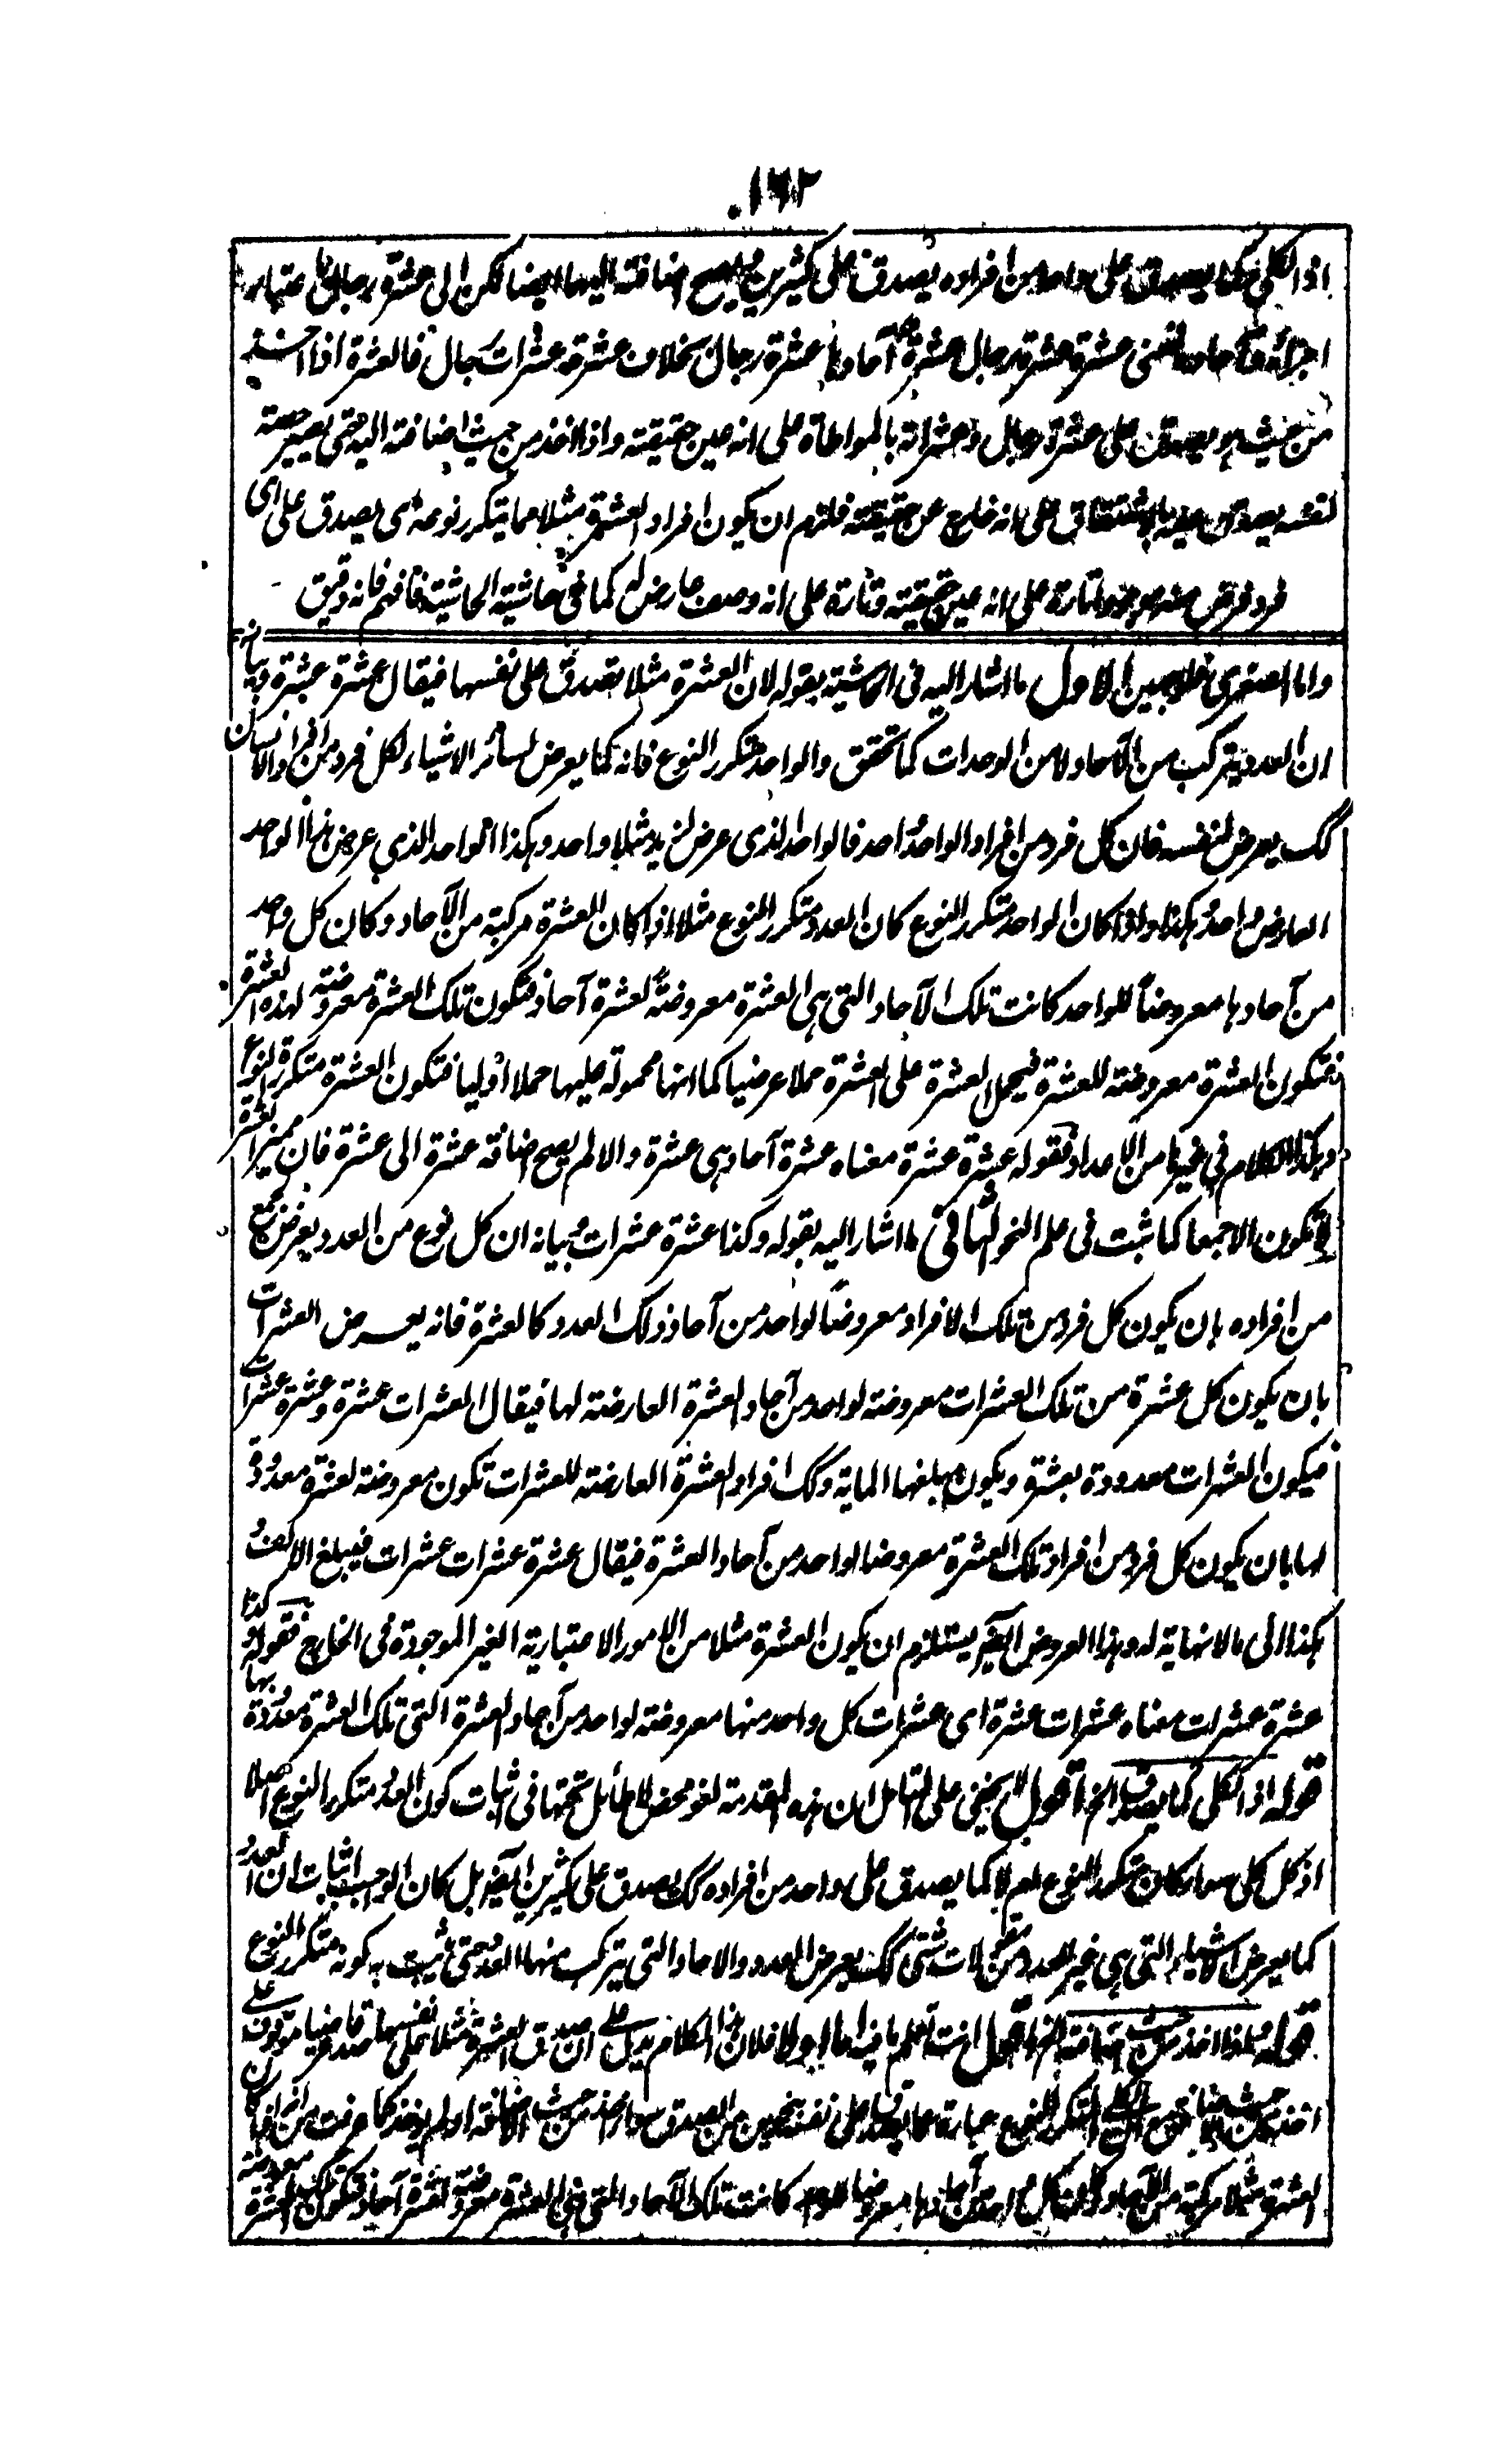 ١٦٢
اذ الكلى كما يصدق على واحد من افراده يصدق على كثيرين فيصح اضافته اليها ايضا لكن الى عشرة رجال باعتبار
اجزائه وآحاده فمعنى عشرة عشرة رجال عشرة آحادها عشرة رجال بخلاف عشرة عشرات رجال فالعشرة اذا اخذ
من حيث هو يصدق على عشرة رجال وعشراته بالمواطاة على انه عين حقيقته واذا اخذ من حيث اضافته اليه حتى يصير حصة
لنفسه يصدق عليه بالاشتقاق على انه خارج عن حقيقته فلزم ان يكون افراد العشرة مثلا مما يتكرر نوعه اى يصدق على اى
فرد فرض منه هو هو تارة على انه عين حقيقته وتارة على انه وصف عارض له كما فى حاشية الحاشية فافهم فانه دقيق
واما الصغرى فلوجهين الاول ما اشار اليه فى الحاشية بقوله لان العشرة مثلا تصدق على نفسها فيقال عشرة عشرة وبيانه
ان العدد يتركب من الآحاد لا من الوحدات كما تحقق والواحد متكرر النوع فانه كما يعرض لسائر الاشياء لكل فرد من افراد الانسان
كك يعرض لنفسه فان كل فرد من افراد الواحد واحد فالواحد الذى عرض لزيد مثلا واحد وهكذا الواحد الذى عرض هذا الواحد
العارض واحد وهكذا واذا كان الواحد متكرر النوع كان العدد متكرر النوع مثلا اذا كان العشرة مركبة من الآحاد وكان كل واحد
من آحادها معروضاً للواحد كانت تلك الآحاد التى هى العشرة معروضة لعشرة آحاد فتكون تلك العشرة معروضة لهذه العشرة
فتكون العشرة معروضة للعشرة فيحمل العشرة على العشرة حملا عرضيا كما انها محمولة عليها حملا اوليا فتكون العشرة متكررة النوع
وهكذا الكلام فى غيرها من الاعداد فقوله عشرة عشرة معناه عشرة آحاد هى عشرة والا لم يصح اضافة عشرة الى عشرة فان مميز العشرة
لا يكون الا جمعا كما ثبت فى علم النحو الثانى ما اشار اليه بقوله وكذا عشرة عشرات وبيانه ان كل نوع من العدد يعرض لجمع
من افراده بان يكون كل فرد من تلك الافراد معروضا لواحد من آحاد ذلك العدد كالعشرة فانه يعرض العشرات
بان يكون كل عشرة من تلك العشرات معروضة لواحد من آحاد العشرة العارضة لها فيقال العشرات عشرة وعشرة عشرات
فيكون العشرات معدودة بعشرة ويكون مبلغها الماية وكك افراد العشرة العارضة للعشرات تكون معروضة لعشرة معدودة
لها بان يكون كل فرد من افراد تلك العشرة معروضا لواحد من آحاد العشرة فيقال عشرة عشرات عشرات فيبلغ الالف و
هكذا الى ما لا نهاية له وهذا العروض ايضا يستلزم ان يكون العشرة مثلا من الامور الاعتبارية الغير الموجودة فى الخارج فقوله وكذا
عشرة عشرات معناه عشرات عشرة اى عشرات كل واحد منها معروضة لواحد من آحاد العشرة التى تلك العشرة معدودة بها
قوله اذ الكلى كما يصدق الخ اقول لا يخفى على المتامل ان هذه المقدمة لغو محض لا طائل تحتها فى اثبات كون العدد متكرر النوع اصلا
اذ كل كلى سواء كان متكرر النوع ام لا كما يصدق على واحد من افراده كك يصدق على كثيرين ايضا بل كان الواجب اثبات ان العدد
كما يعرض الاشياء التى هى غير العدد من مقولات شتى كك يعرض العدد والآحاد التى يتركب منها العدد حتى يثبت به كونه متكرر النوع
قوله واذا اخذ من حيث اضافته الخ اقول انت تعلم ما فيه اما اولا فلان هذا الكلام يدل على ان صدق العشرة مثلا على نفسها صدقا عرضيا موقوف على
اخذه من حيث الاضافة مع ان الكلى المتكرر النوع عبارة عما يصدق على نفسه بنحوين من الصدق سواء اخذ من حيث الاضافة او لم يوخذ كما عرفت من انه اذا كان
العشرة مثلا مركبة من الآحاد وكان كل واحد من آحادها معروضا للواحد كانت تلك الآحاد التى هى العشرة معروضة لعشرة آحاد فتكون تلك العشرة معروضة